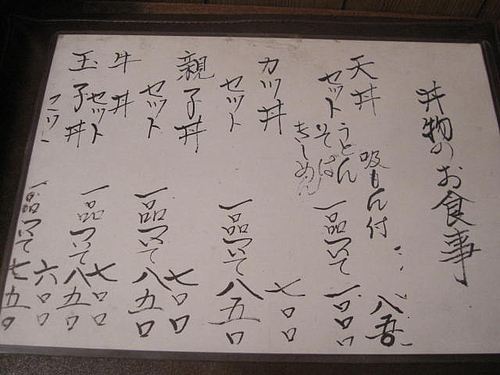 丼物のお食事
吸もん付
天丼 八五〇
セット うどん そば きしめん 一品ついて 一〇〇〇
カツ丼 七〇〇
セット 一品ついて 八五〇
親子丼 七〇〇
セット 一品ついて 八五〇
牛丼 七〇〇
セット 一品ついて 八五〇
玉子丼 六〇〇
セット 一品ついて 七五〇